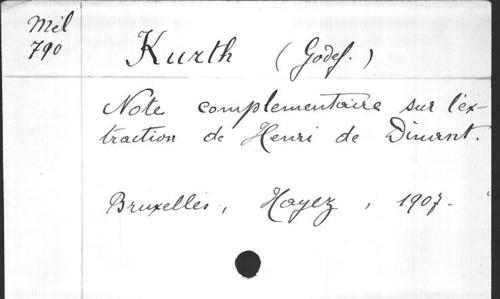 Mél
790
Kurth (Godef.)
Note complementaire sur l'ex-
traction de Henri de Dinant.
Bruxelles, Hayez, 1907.